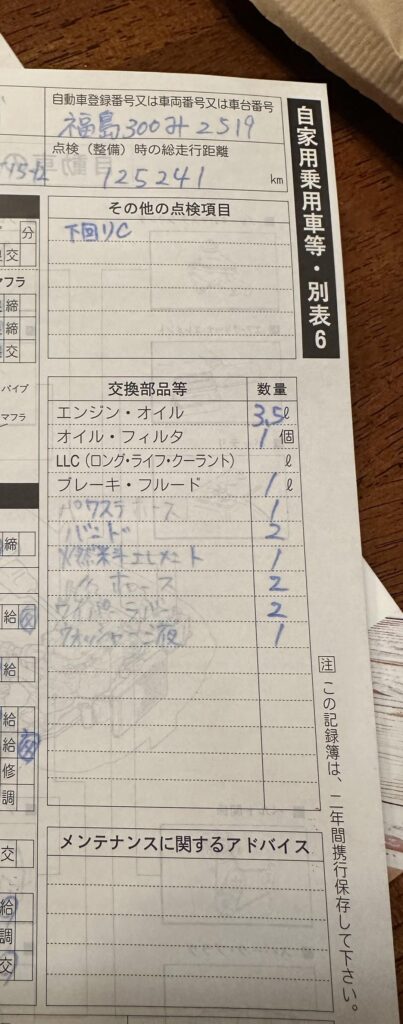 自動車登録番号又は車両番号又は車台番号
福島300み2519
点検（整備）時の総走行距離
125241 km
自家用乗用車等・別表6
その他の点検項目
下回りC
分
交
マフラ
締
締
交
パイプ
マフラ
締
給
給
給
給
修
調
交
給
調
交
交換部品等 数量
エンジン・オイル 3.5ℓ
オイル・フィルタ 1個
LLC（ロング・ライフ・クーラント） ℓ
ブレーキ・フルード 1ℓ
パワステホース 1
バンド 2
燃料エレメント 1
ホース 2
ワイパーラバー 2
ウォッシャー液 1
メンテナンスに関するアドバイス
注 この記録簿は、二年間携行保存して下さい。